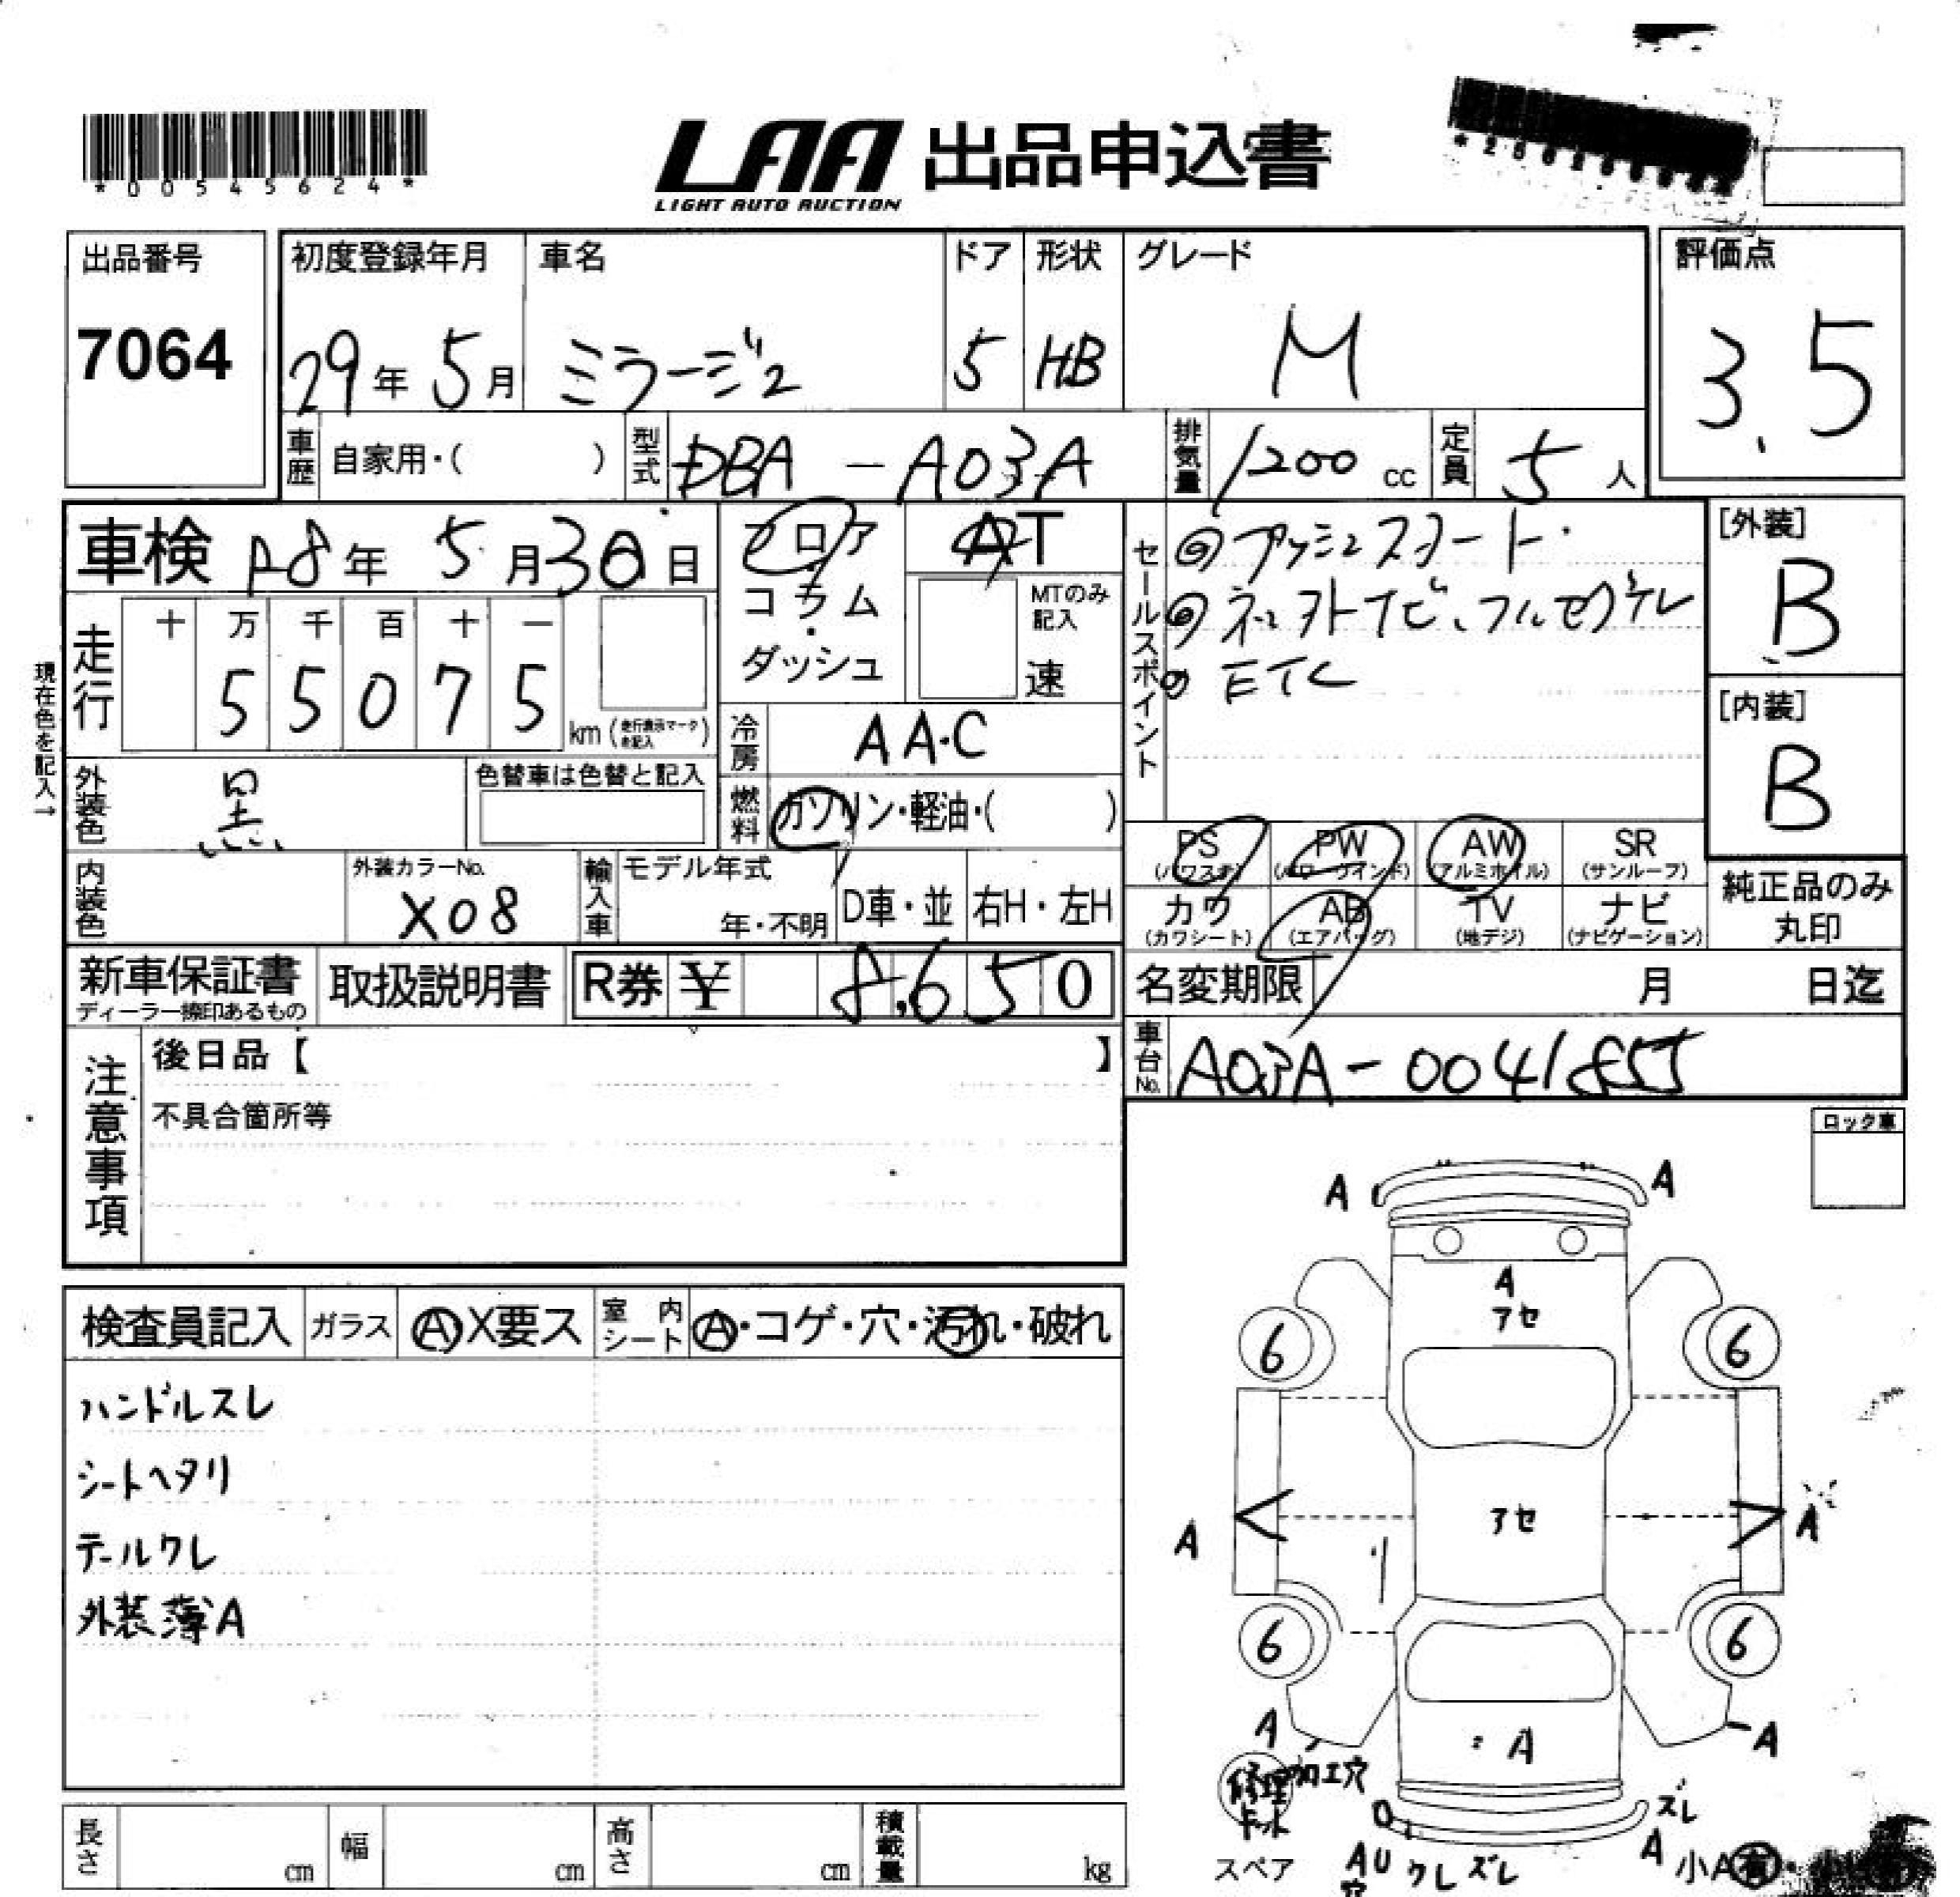 *00545624*
LAA 出品申込書
LIGHT AUTO AUCTION
出品番号
7064
初度登録年月
29年 5月
車名
ミラージュ
ドア
5
形状
HB
グレード
M
評価点
3.5
車歴
自家用・( )
型式
DBA-A03A
排気量
1200 cc
定員
5人
車検 R8年 5月30日
フロア
コラム
ダッシュ
AT
MTのみ
記入
速
セールスポイント
◎プッシュスタート
◎ネットナビ、フルセグTV
◎ETC
[外装]
B
[内装]
B
現在色を記入→
走行
十 万 千 百 十 一
5 5 0 7 5
km (走行表示マークを記入)
冷房
AA・C
外装色
黒
色替車は色替と記入
燃料
ガソリン・軽油・( )
内装色
外装カラーNo.
X08
輸入車
モデル年式
年・不明
D車・並
右H・左H
PS
(パワステ)
PW
(パワーウインド)
AW
(アルミホイル)
SR
(サンルーフ)
カワ
(カワシート)
AB
(エアバッグ)
TV
(地デジ)
ナビ
(ナビゲーション)
純正品のみ
丸印
新車保証書
ディーラー捺印あるもの
取扱説明書
R券 ¥ 8,650
名変期限 月 日迄
車台No.
A03A-0041855
注意事項
後日品【 】
不具合箇所等
ロック車
検査員記入
ガラス
A・X要ス
室内シート
A・コゲ・穴・汚れ・破れ
ハンドルスレ
シートヘタリ
テールワレ
外装薄A
A A
A
アセ
6 6
アセ
A A
6 6
A A A
修理 加工穴
ズレ
スペア
AU ワレ ズレ
穴
A
小A有
長さ cm
幅 cm
高さ cm
積載量 kg